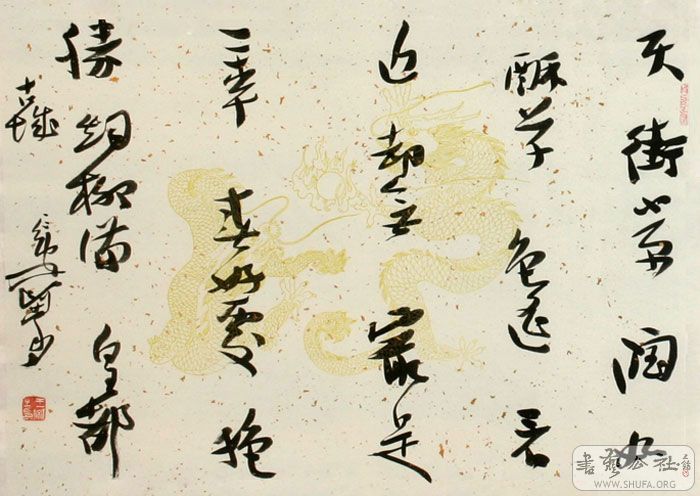 天街小雨润如
酥草色遥看
近却无最是
一年春好處绝
勝烟柳满皇都
古城
書藝公社
WWW.SHUFA.ORG